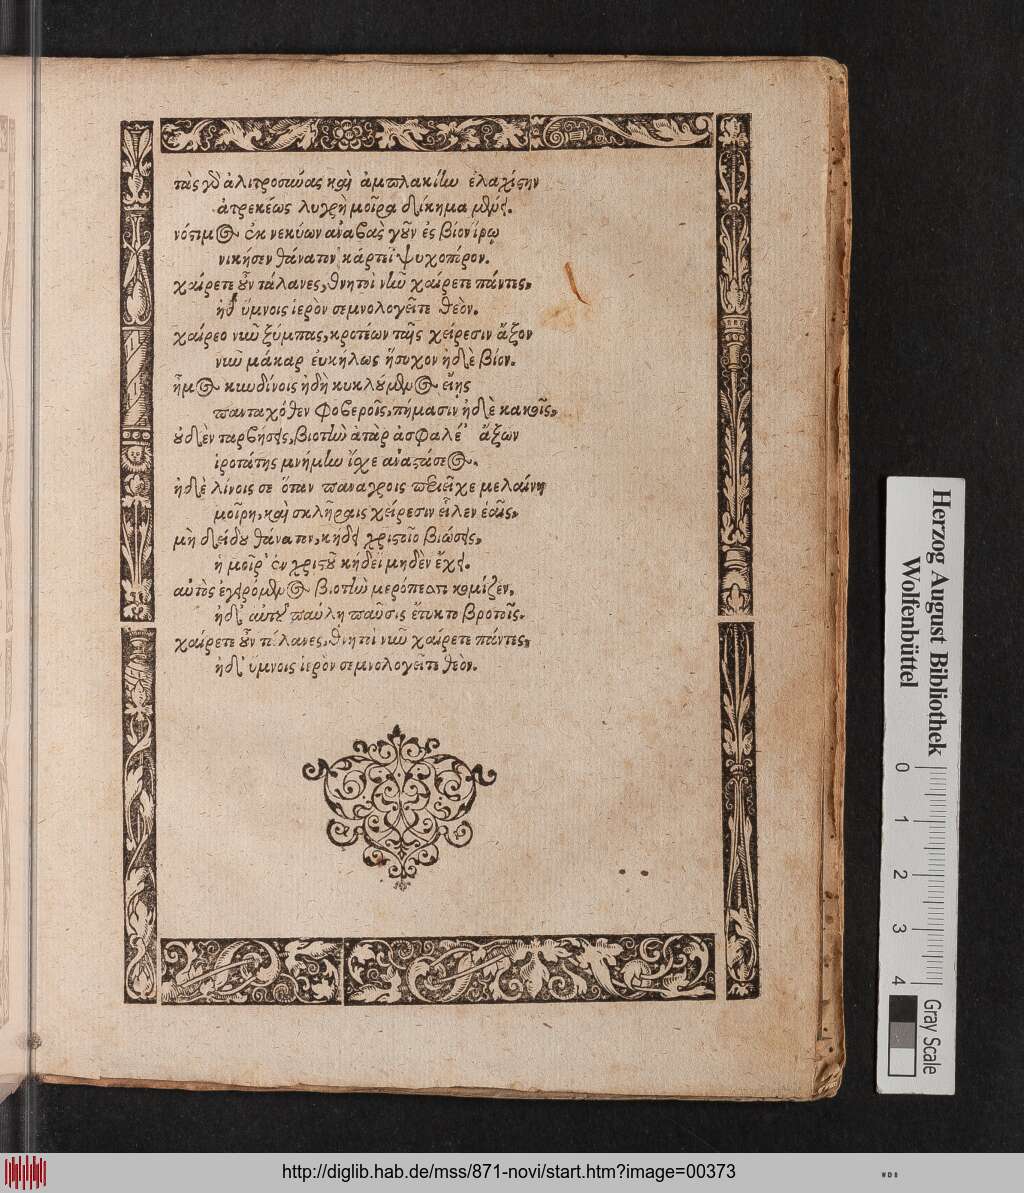 τὰς γδ ἀλιτροσύνας καὶ ἀμπλακίην ἐλαχίστην
ἀτρεκέως λυγρὴ μοῖρα δίκημα μένει.
νόστιμος ἐκ νεκύων ἀναβὰς γοῦν ἐς βίον ἱρῷ
νικήσεν θάνατον κάρτεϊ ψυχοπόρον.
χαίρετε οὖν τάλανες, θνητοὶ νῦν χαίρετε πάντες,
ἠδ' ὕμνοις ἱερὸν σεμνολογεῖτε θεόν.
χαίρεο νῦν ξύμπας, κροτέων ταῖς χείρεσιν ἄξον
νῦν μάκαρ εὐκήλως ἥσυχον ἠδὲ βίον.
ἦμος κινδύνοις ἠδὴ κυκλούμενος εἴης
πανταχόθεν φοβεροῖς, πήμασιν ἠδὲ κακοῖς,
οὐδὲν ταρβήσεις, βιοτὴν ἀτὰρ ἀσφαλέ' ἄξων
ἱροτάτης μνήμην ἴσχε ἀναστάσεος.
ἠδὲ λίνοις σε ὅταν παναγροις περιεῖχε μελαίνη
μοίρη, καὶ σκληραῖς χείρεσιν εἷλεν ἑαῖς,
μὴ δείδου θάνατον, κήδει χριστοῖο βιώσεις,
ἡ μοῖρ' ἐν χριστοῦ κήδεϊ μηδὲν ἔχει.
αὐτὸς ἐγειρόμενος βιοτὴν μερόπεσσι κομίζεν,
ἠδ' αὐτοῦ παύλη παῦσις ἔτυκτο βροτοῖς.
χαίρετε οὖν τάλανες, θνητοὶ νῦν χαίρετε πάντες,
ἠδ' ὕμνοις ἱερὸν σεμνολογεῖτε θεόν.
Herzog August Bibliothek
Wolfenbüttel
0 1 2 3 4
Gray Scale
http://diglib.hab.de/mss/871-novi/start.htm?image=00373